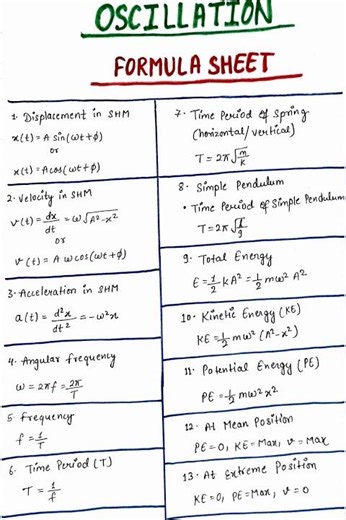 OSCILLATION
FORMULA SHEET
1. Displacement in SHM
x(t) = A sin(ωt+ϕ)
or
x(t) = A cos(ωt+ϕ)
2. Velocity in SHM
v(t) = dx/dt = ω√A²-x²
or
v(t) = A ω cos(ωt+ϕ)
3. Acceleration in SHM
a(t) = d²x/dt² = -ω²x
4. Angular frequency
ω = 2πf = 2π/T
5. Frequency
f = 1/T
6. Time Period (T)
T = 1/f
7. Time Period of Spring
(horizontal/vertical)
T = 2π√m/k
8. Simple Pendulum
• Time Period of Simple Pendulum
T = 2π√l/g
9. Total Energy
E = 1/2 kA² = 1/2 mω² A²
10. Kinetic Energy (KE)
KE = 1/2 mω² (A²-x²)
11. Potential Energy (PE)
PE = 1/2 mω²x²
12. At Mean Position
PE = 0, KE = Max, v = Max
13. At Extreme Position
KE = 0, PE = Max, v = 0